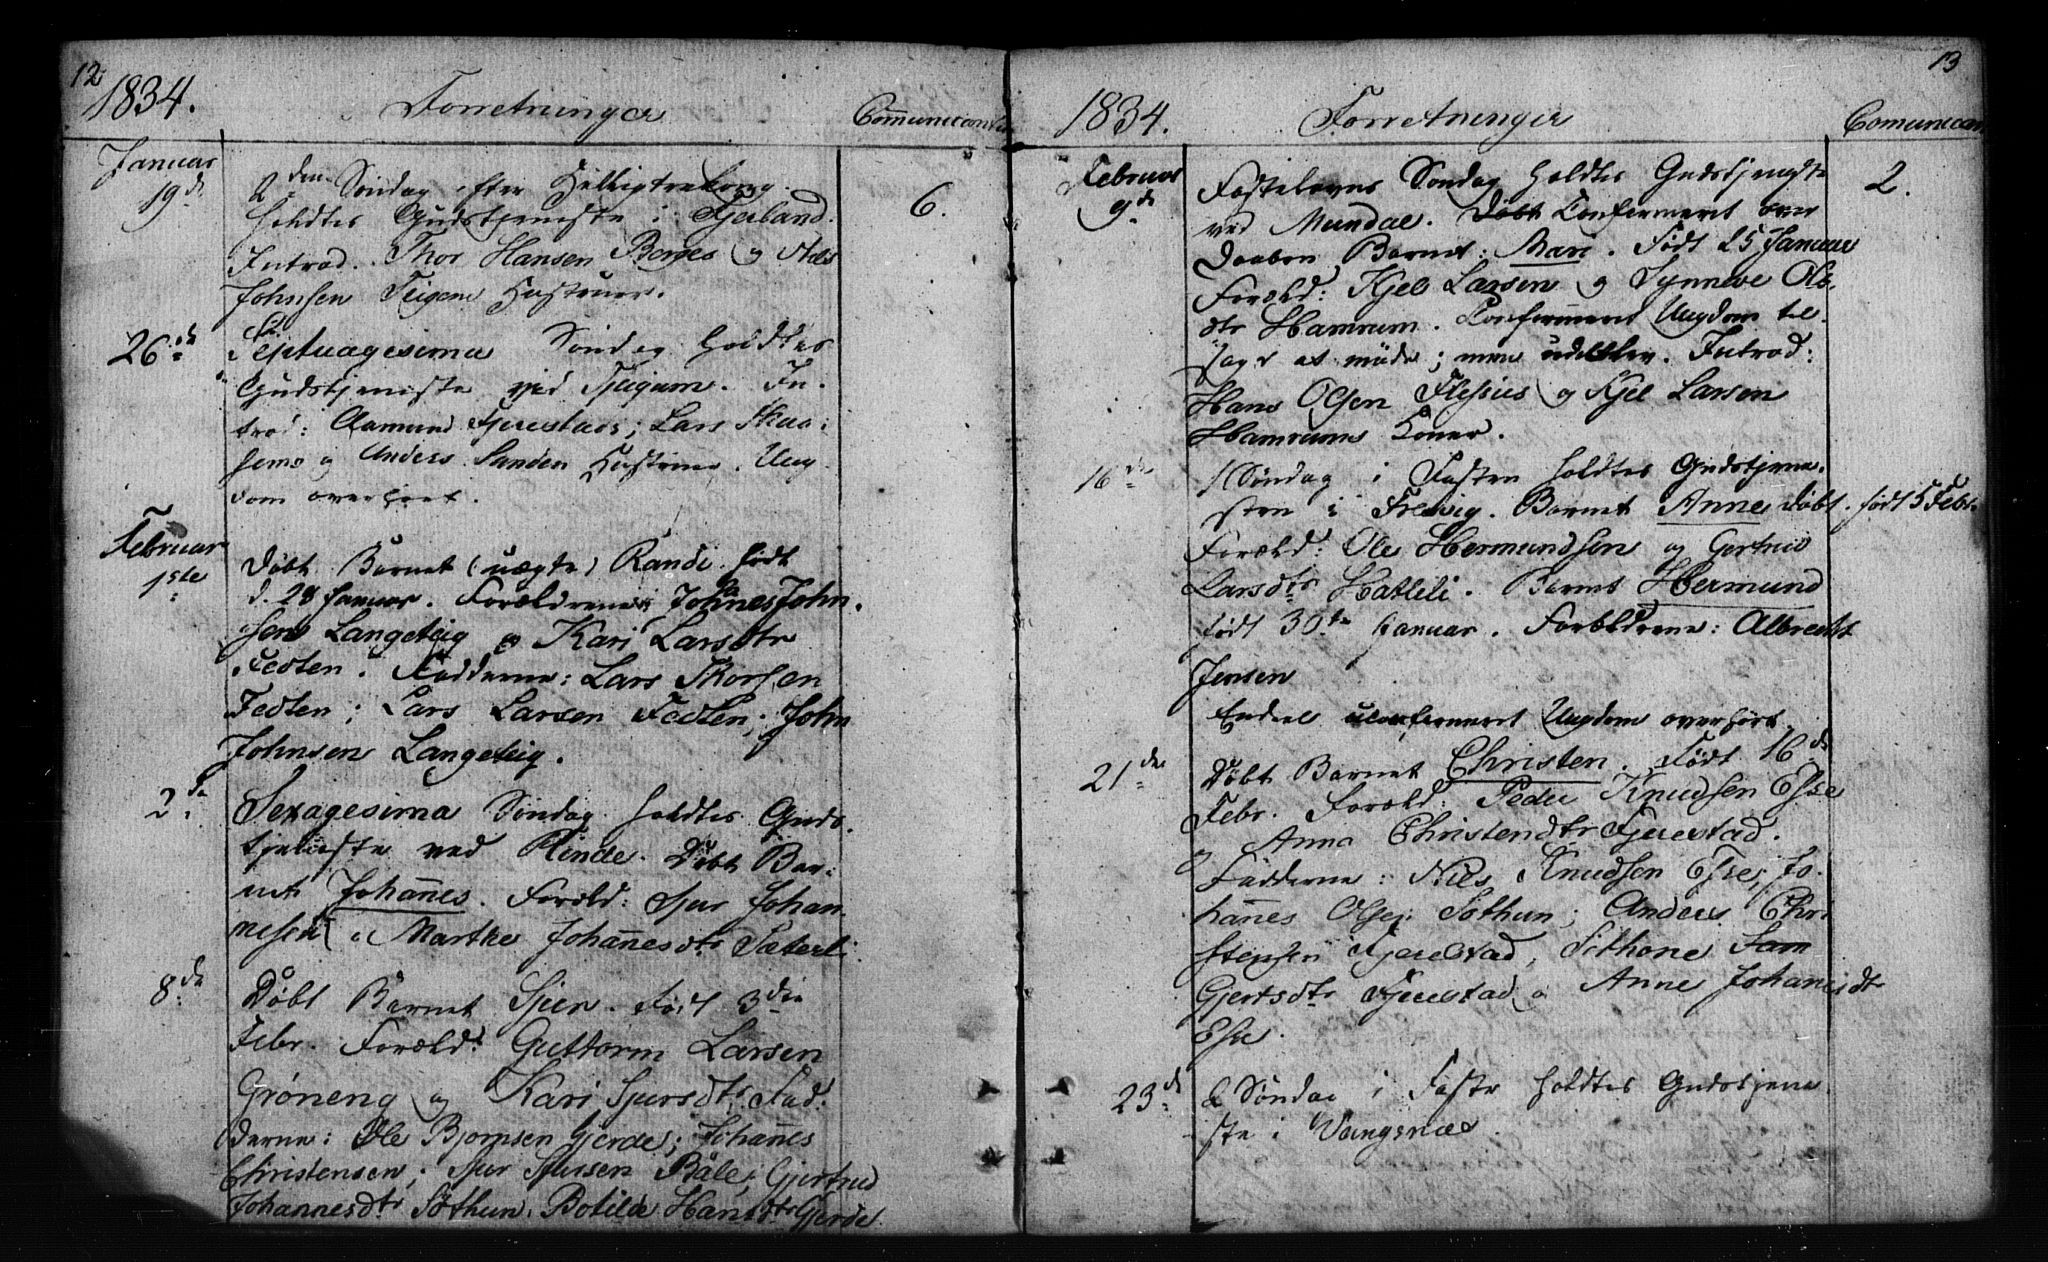 12
1834.
Forretninger
Communicanter
Januar
19de
2den Søndag efter Helligtrekong.
holdtes Gudstjeneste i Fjerland.
Introd. Thor Hansen Berges og
Johnsen Teigens Hustruer.
6.
26de
Septuagesima Søndag holdtes
Gudstjeneste ved Tjugum. In-
trod: Aamund Fjerestads; Lars
og Anders Sanden Hustruer. Ung-
dom overhørt.
Februar
1ste
Døbt Barnet (uægte) Randi født
d. 28 Januar. Forældrene: Johnes John-
sens Langeteig og Kari Larsdtr
Fedten. Fadderne: Lars Thorsen
Fedten; Lars Larsen Fedten; John
Johnsen Langeteig.
2de
Sexagesima Søndag holdtes Guds-
tjeneste ved Rinde. Døbt Bar-
net Johannes. Foræld: Sjur Johan-
nesen og Marthe Johannesdtr Sæterli
8de
Døbt Barnet Sjur. født 3die
Febr. Foræld: Guttorm Larsen
Grøneng og Kari Sjursdtr. Fad-
derne: Ole Bjornsen Gjerde; Johannes
Christensen; Sjur Sjursen Båle; Gjertrud
Johannesdtr Sothun. Botilde Hansdtr Gjerde
13
1834.
Forretninger
Comunicant
Februar
9de
Fastelavns Søndag holdtes Gudstjeneste
ved Mundal. Døbt Confermeret over
Daaben Barnet: Mari. Født 25 Januar
Foræld: Kjel Larsen og Synneve Ols-
dtr Hamrum. Confermeret Ungdom til-
sagt at møde; men udeblev. Introd:
Hans Olsen Flesjes og Kjel Larsen
Hamrums Koner.
2.
16de
1 Søndag i Fasten holdtes Gudstjene-
sten i Fresvig. Barnet Anne Døbt. født 5 Febr
Foræld: Ole Hermundsen og Gertrud
Larsdtr Hatleli. Barnet Hermund
født 30te Januar. Forældrene: Albrecht
Jensen
Endeel uconfermeret Ungdom overhørt.
21de
Døbt Barnet Christen. Født 16de
Febr. Foræld: Peder Knudsen Esse
og Anna Christendtr Fjerestad.
Fadderne: Nils Knudsen Esse; Jo-
hannes Olsen Sothun; Anders Chri
stensen Fjerestad, Sithone Sam
Gjertsdtr Fjerestad og Anne Johannesdtr
Esse.
23de
2 Søndag i Faste holdtes Gudstjene
ste i Vangsnæs.